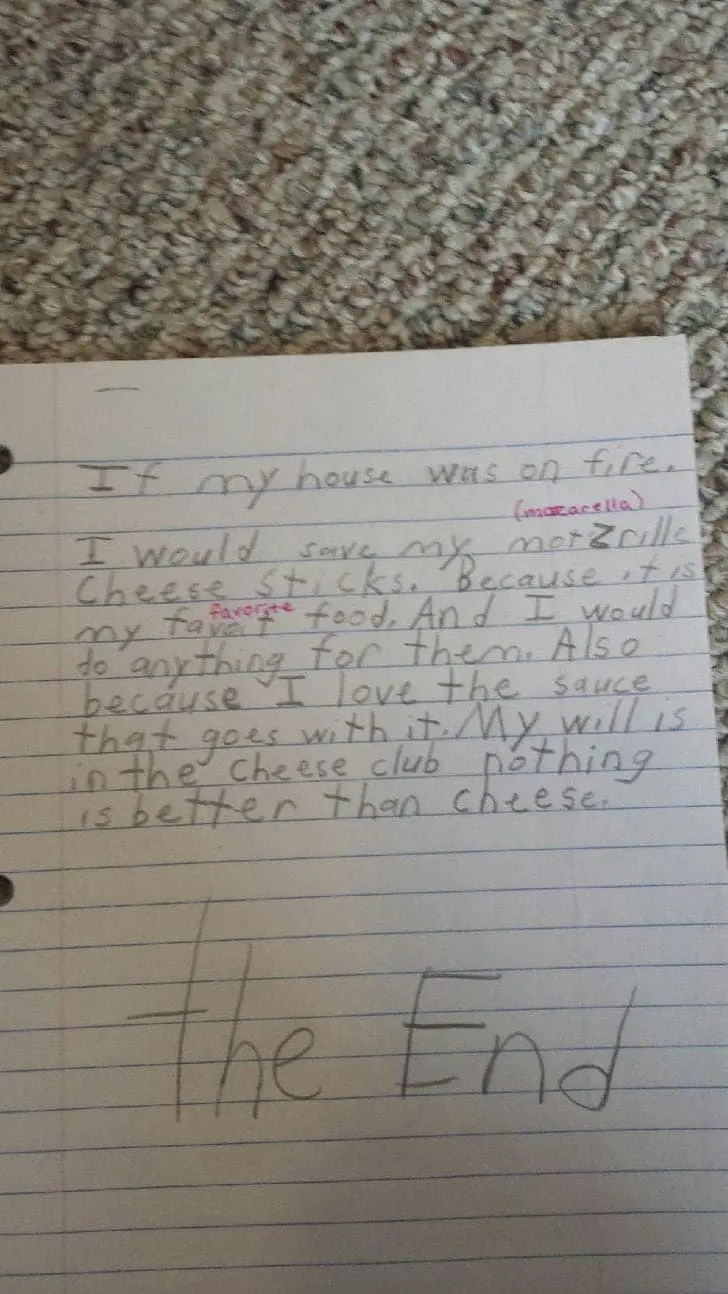 If my house was on fire.
(mozarella)
I would save my motzrille
Cheese sticks. Because it is
favorite
my faveit food. And I would
do anything for them. Also
because I love the sauce
that goes with it. My will is
in the cheese club nothing
is better than cheese.
the End